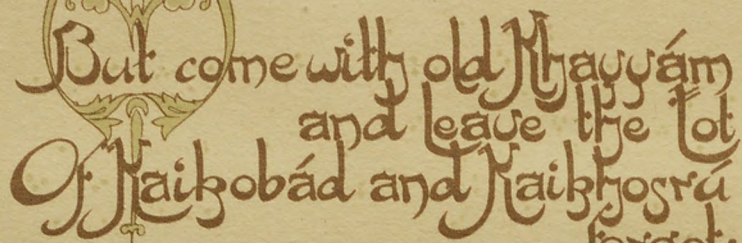 But come with old Khayyám
and leave the Lot
Of Kaikobád and Kaikhosrú
forgot: